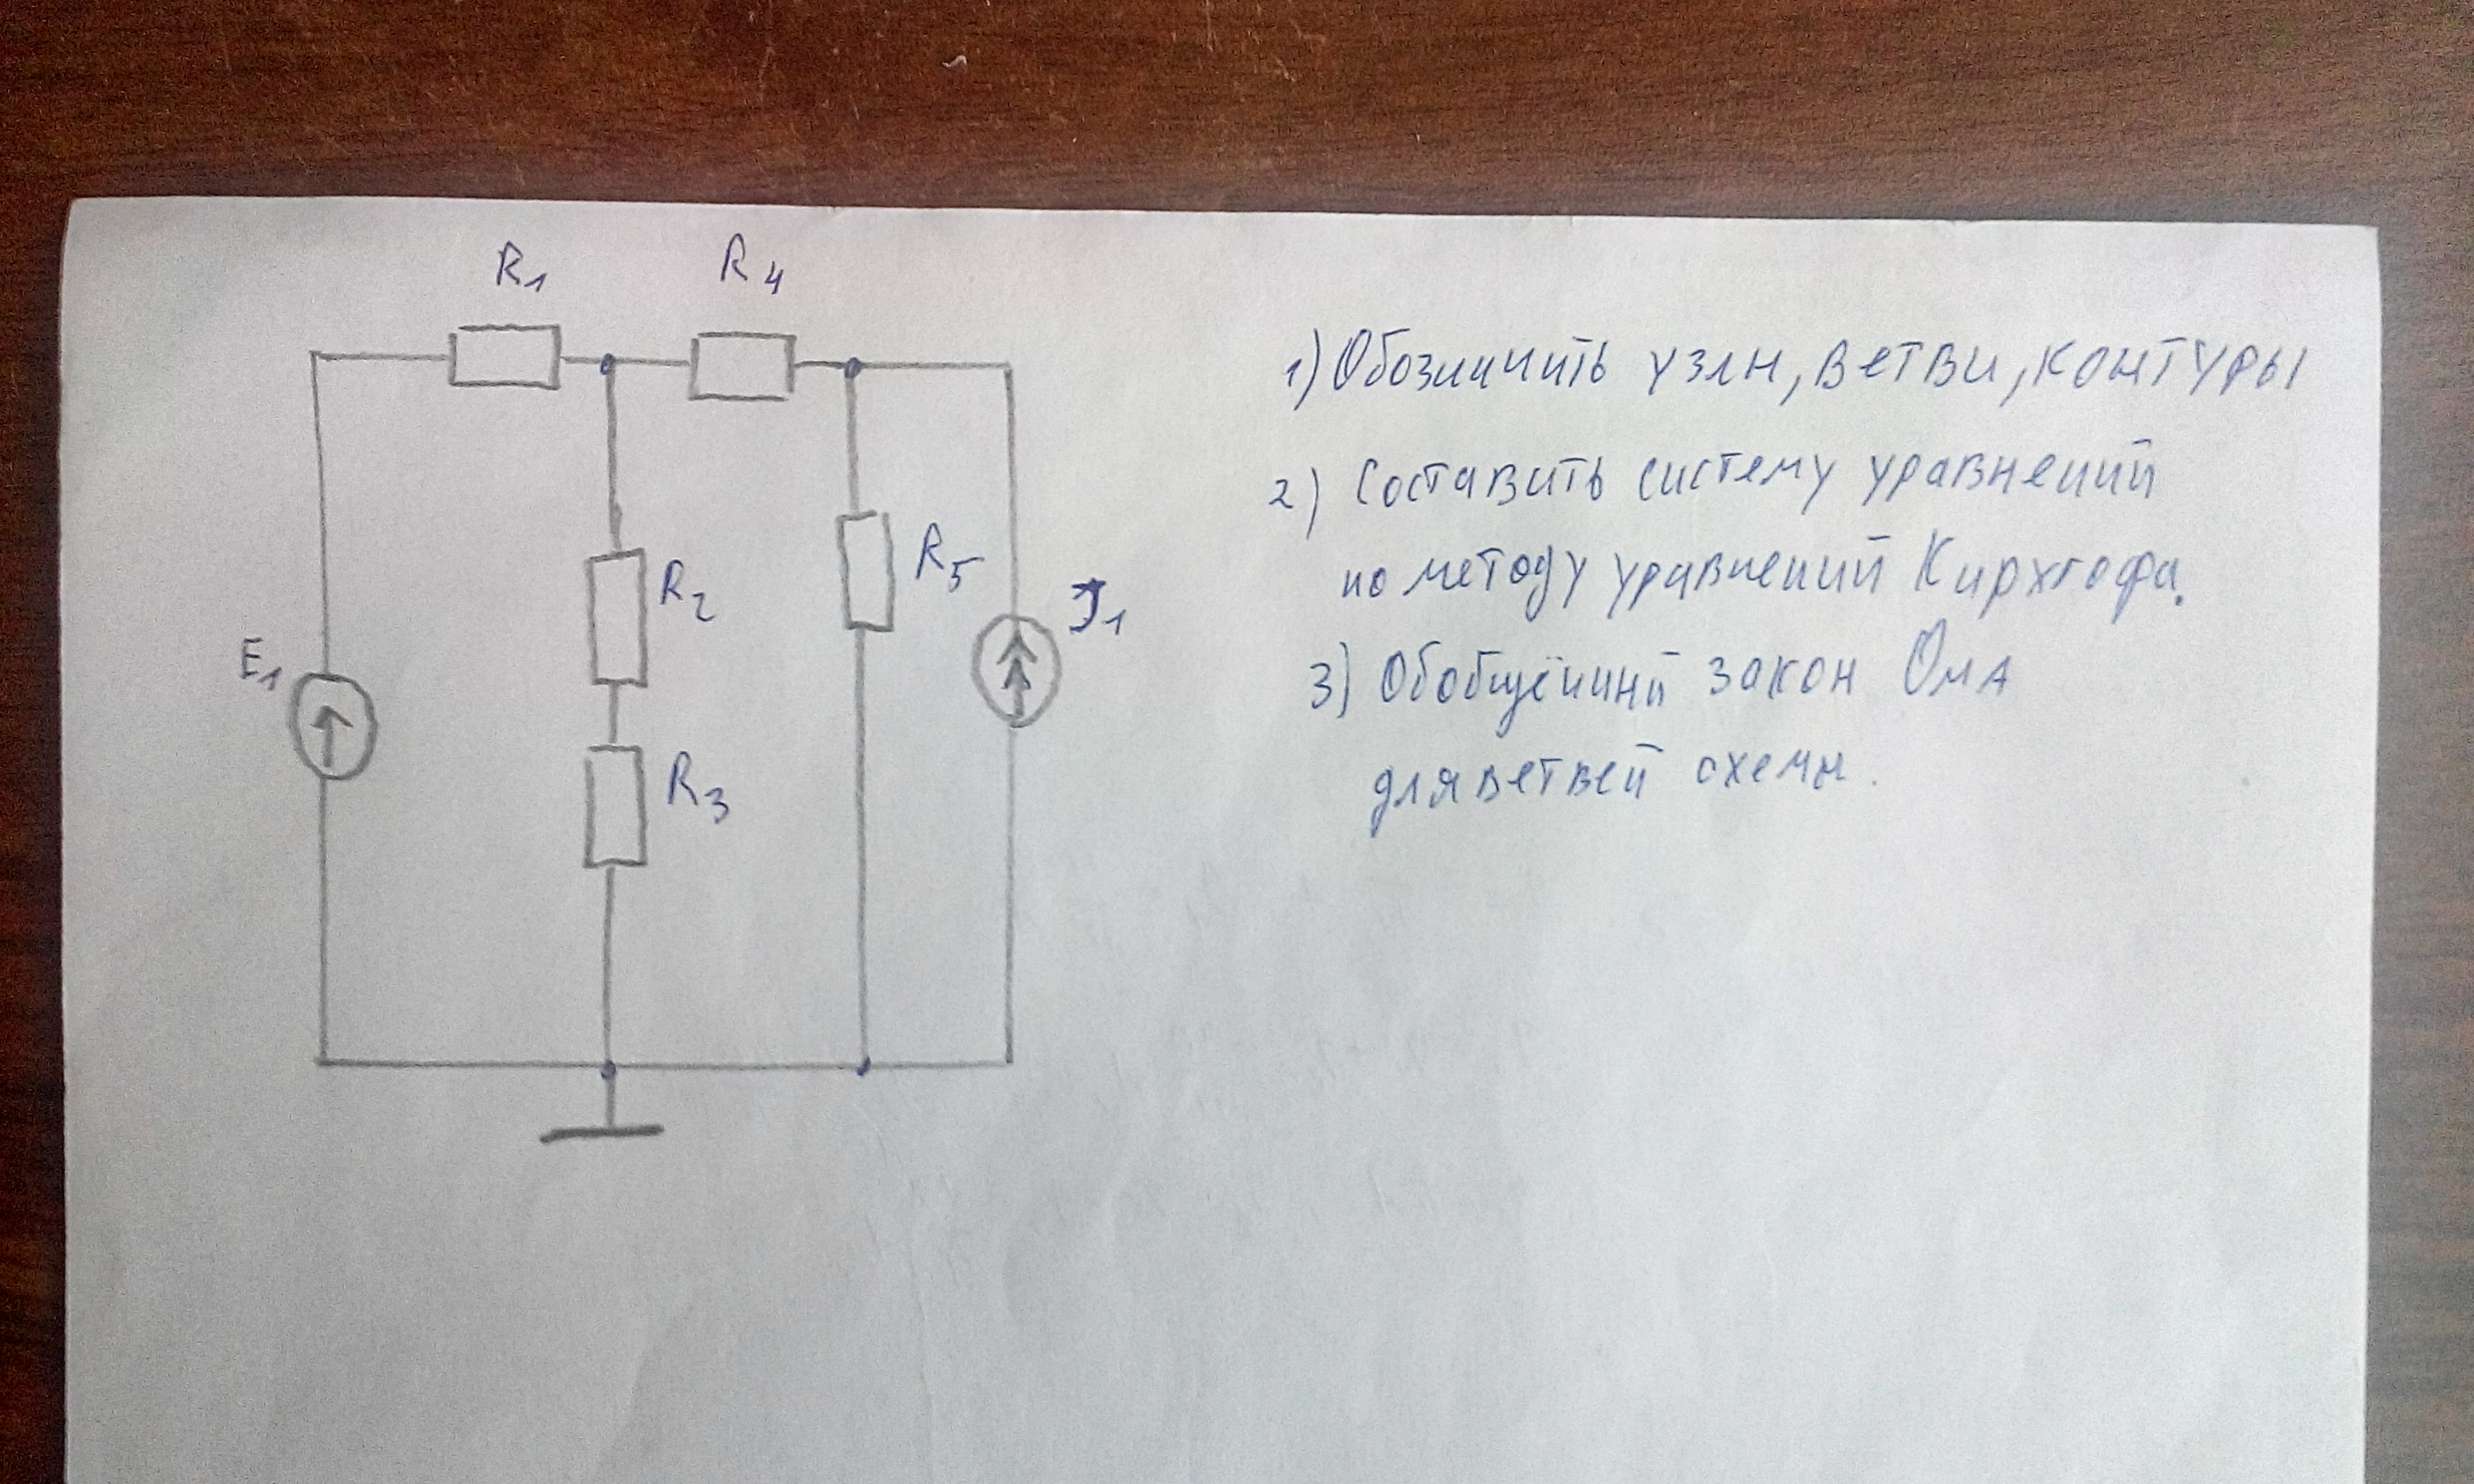 R1
R4
R2
R5
J1
E1
R3
1) Обозначить узлы, ветви, контуры
2) Составить систему уравнений
по методу уравнений Кирхгофа.
3) Обобщённый закон Ома
для ветвей схемы.